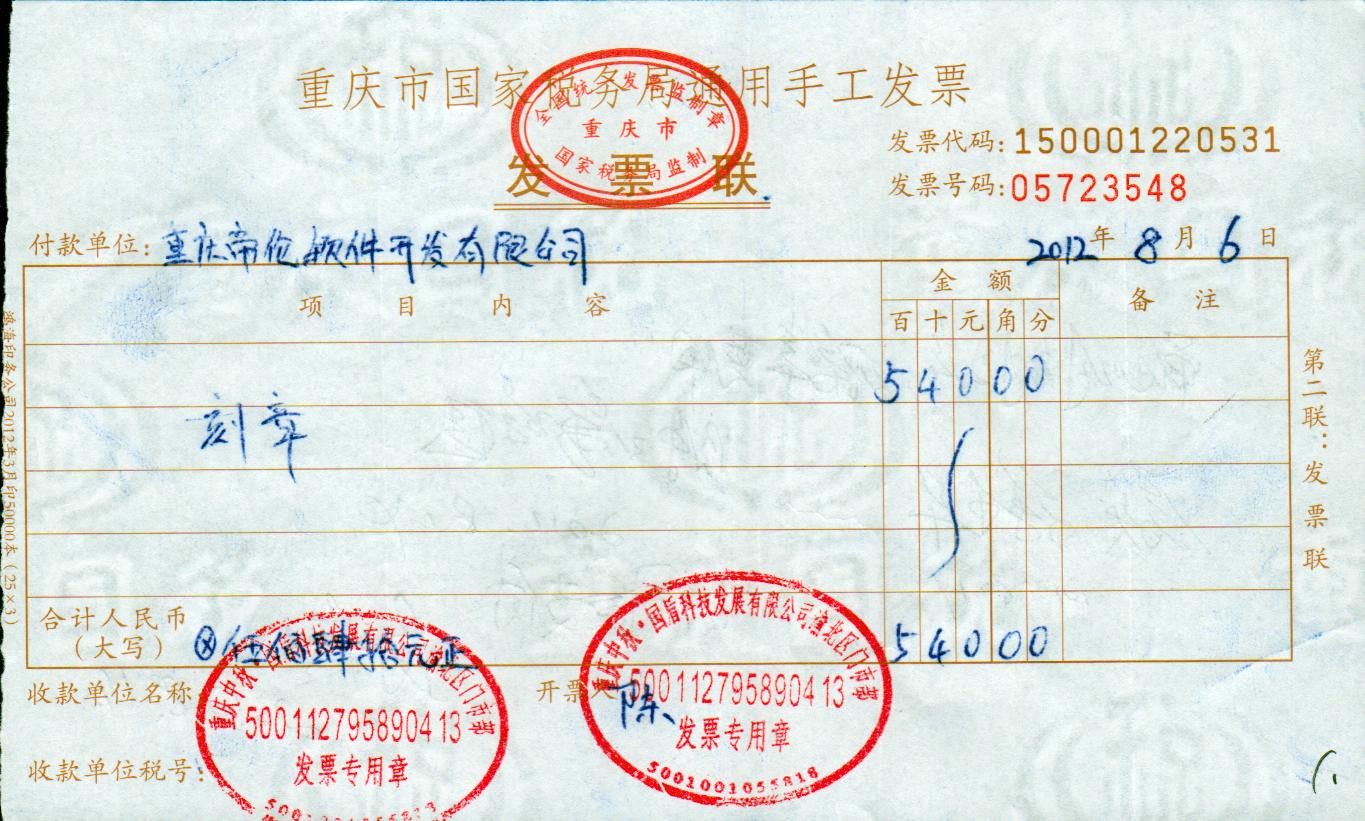 重庆市国家税务局通用手工发票
全国统一发票监制章
重庆市
国家税务局监制
发票联
发票代码:150001220531
发票号码:05723548
付款单位:重庆帝伦软件开发有限公司
2012年8月6日
项目内容 金额 备注
百十元角分
刻章 54000
合计人民币
(大写) ⊗伍佰肆拾元正 54000
收款单位名称:
开票人 陈
收款单位税号:
重庆中秋·国盾科技发展有限公司渝北区门市部
500112795890413
发票专用章
重庆中秋·国盾科技发展有限公司渝北区门市部
500112795890413
发票专用章
5001001055818
第二联:发票联
海印务公司2012年3月印50000本(25×3)